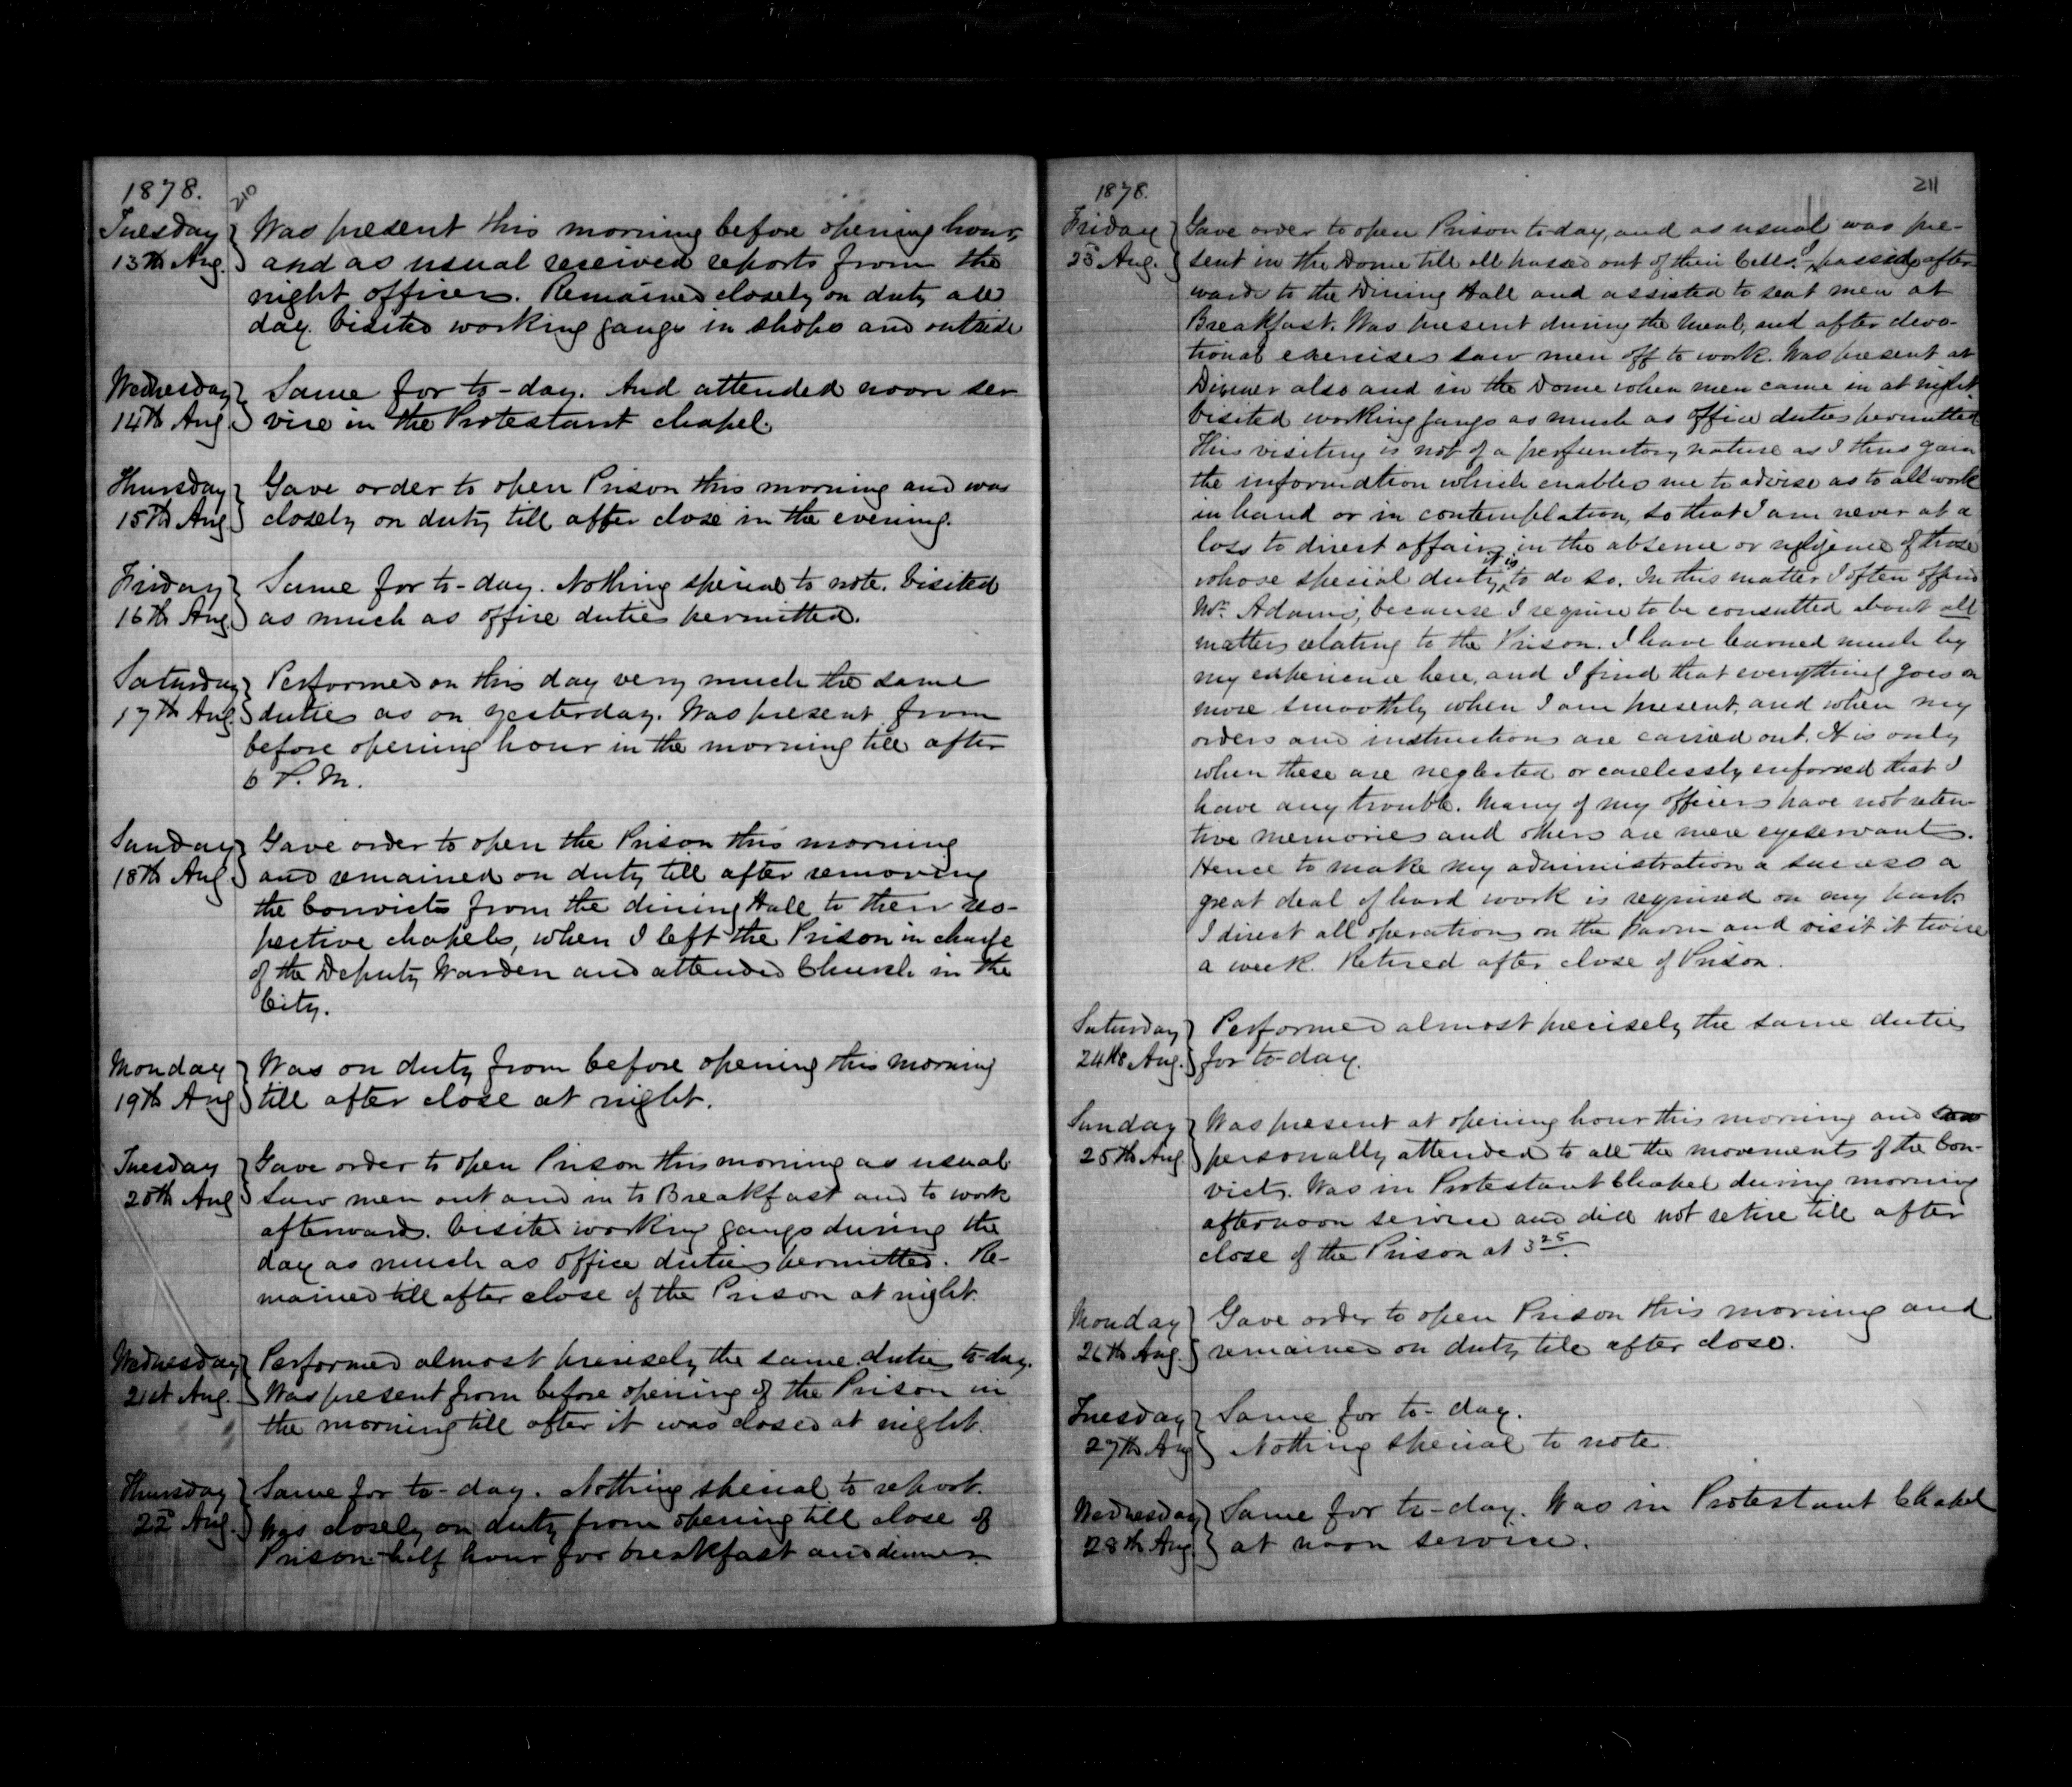 1878.
210
Tuesday
13th Aug.
Was present this morning before opening hour,
and as usual received reports from the
night officers. Remained closely on duty all
day. Visited working gangs in shops and outside
Wednesday
14th Aug.
Same for to-day. And attended noon ser
vice in the Protestant chapel.
Thursday
15th Aug
Gave order to open Prison this morning and was
closely on duty till after close in the evening.
Friday
16th Aug.
Same for to-day. Nothing special to note. Visited
as much as office duties permitted.
Saturday
17th Aug.
Performed on this day very much the same
duties as on yesterday. Was present from
before opening hour in the morning till after
6 P.M.
Sunday
18th Aug.
Gave order to open the Prison this morning
and remained on duty till after removing
the Convicts from the dining Hall to their res-
pective chapels, when I left the Prison in charge
of the Deputy Warden and attended Church in the
City.
Monday
19th Aug
Was on duty from before opening this morning
till after close at night.
Tuesday
20th Aug
Gave order to open Prison this morning as usual
Saw men out and in to Breakfast and to work
afterwards. Visited working gangs during the
day as much as office duties permitted. Re-
mained till after close of the Prison at night.
Wednesday
21st Aug.
Performed almost precisely the same duties to-day.
Was present from before opening of the Prison in
the morning till after it was closed at night.
Thursday
22d Aug.
Same for to-day. Nothing special to report.
Was closely on duty from opening till close of
Prison-half hour for breakfast and dinner.
1878.
211
Friday
23 Aug.
Gave order to open Prison to-day, and as usual was pre-
sent in the Dome till all passed out of their Cells. I passed after
wards to the Dining Hall and assisted to seat men at
Breakfast. Was present during the meal, and after devo-
tional exercises saw men off to work. Was present at
Dinner also and in the Dome when men came in at night
Visited working gangs as much as office duties permitted
This visiting is not of a perfunctory nature as I thus gain
the information which enables me to advise as to all work
in hand or in contemplation, so that I am never at a
loss to direct affairs in the absence or negligence of those
whose special duty it is to do so. In this matter I often offend
Mr. Adams, because I require to be consulted about all
matters relating to the Prison. I have learned much by
my experience here, and I find that everything goes on
more smoothly when I am present, and when my
orders and instructions are carried out. It is only
when these are neglected or carelessly enforced that I
have any trouble. Many of my officers have not reten-
tive memories and others are mere eyeservants.
Hence to make my administration a success a
great deal of hard work is required on my part.
I direct all operations on the Farm and visit it twice
a week. Retired after close of Prison.
Saturday
24th Aug.
Performed almost precisely the same duties
for to-day.
Sunday
25th Aug
Was present at opening hour this morning and
personally attended to all the movements of the Con-
victs. Was in Protestant Chapel during morning
afternoon service and did not retire till after
close of the Prison at 3 25.
Monday
26th Aug.
Gave order to open Prison this morning and
remained on duty till after close.
Tuesday
27th Aug
Same for to-day.
Nothing special to note.
Wednesday
28th Aug.
Same for to-day. Was in Protestant Chapel
at noon service.